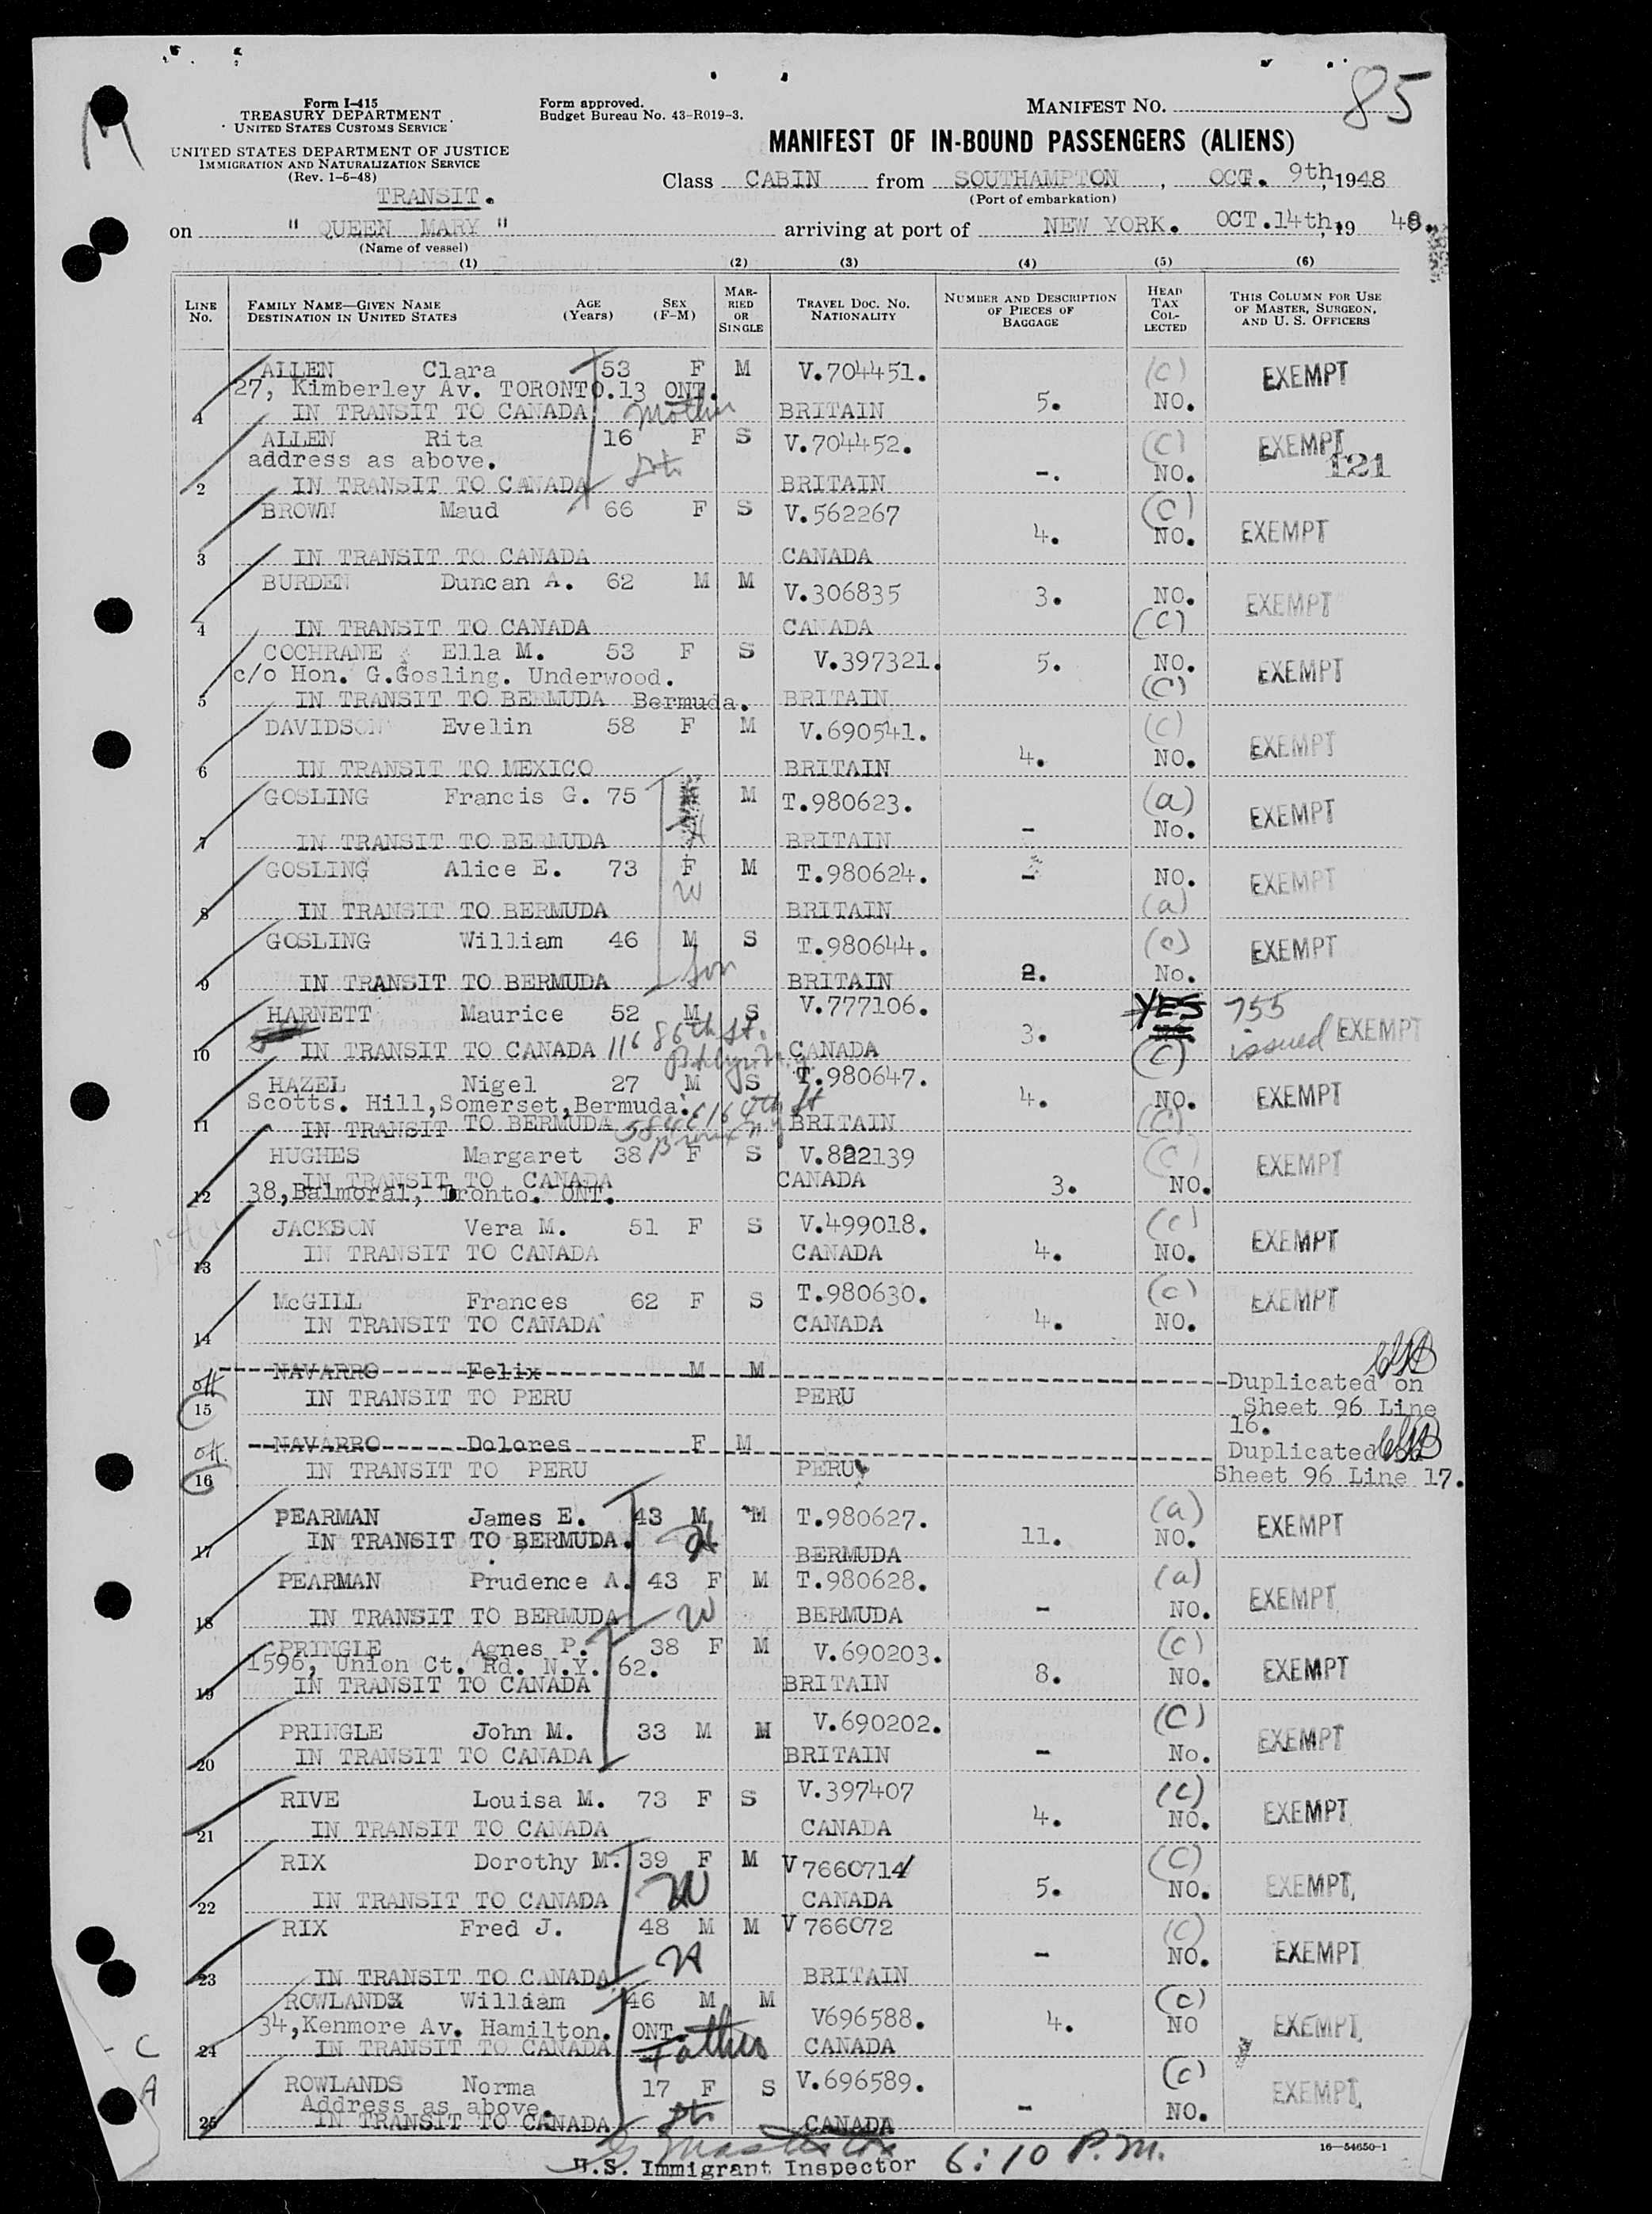 85
M
Form I-415
TREASURY DEPARTMENT
UNITED STATES CUSTOMS SERVICE
UNITED STATES DEPARTMENT OF JUSTICE
IMMIGRATION AND NATURALIZATION SERVICE
(Rev. 1-5-48)
TRANSIT.
Form approved.
Budget Bureau No. 43-R019-3.
MANIFEST NO.
MANIFEST OF IN-BOUND PASSENGERS (ALIENS)
Class CABIN from SOUTHAMPTON, OCT. 9th, 1948
(Port of embarkation)
on " QUEEN MARY " arriving at port of NEW YORK. OCT.14th, 19 48.
(Name of vessel)
(1) (2) (3) (4) (5) (6)
LINE No. FAMILY NAME—GIVEN NAME DESTINATION IN UNITED STATES AGE (Years) SEX (F-M) MARRIED OR SINGLE TRAVEL DOC. NO. NATIONALITY NUMBER AND DESCRIPTION OF PIECES OF BAGGAGE HEAD TAX COLLECTED THIS COLUMN FOR USE OF MASTER, SURGEON, AND U. S. OFFICERS
ALLEN Clara 53 F M V.704451. (c) EXEMPT
27, Kimberley Av. TORONTO.13 ONT.
1 IN TRANSIT TO CANADA Mother BRITAIN 5. NO.
ALLEN Rita 16 F S V.704452. (c) EXEMPT
address as above. 121
2 IN TRANSIT TO CANADA BRITAIN -. NO.
BROWN Maud 66 F S V.562267 4. (c) NO. EXEMPT
3 IN TRANSIT TO CANADA CANADA
BURDEN Duncan A. 62 M M V.306835 3. NO. EXEMPT
4 IN TRANSIT TO CANADA CANADA (c)
COCHRANE Ella M. 53 F S V.397321. 5. NO. EXEMPT
c/o Hon. G.Gosling. Underwood. (c)
5 IN TRANSIT TO BERMUDA Bermuda. BRITAIN
DAVIDSON Evelin 58 F M V.690541. (c) EXEMPT
6 IN TRANSIT TO MEXICO BRITAIN 4. NO.
GOSLING Francis G. 75 M T.980623. (a) EXEMPT
7 IN TRANSIT TO BERMUDA H BRITAIN - No.
GOSLING Alice E. 73 F M T.980624. - NO. EXEMPT
8 IN TRANSIT TO BERMUDA W BRITAIN (a)
GOSLING William 46 M S T.980644. (c) EXEMPT
9 IN TRANSIT TO BERMUDA Son BRITAIN 2. No.
HARNETT Maurice 52 M S V.777106. YES 755
10 IN TRANSIT TO CANADA 116 86th St. CANADA 3. (c) issued EXEMPT
HAZEL Nigel 27 M S T.980647. 4. NO. EXEMPT
Scotts. Hill,Somerset,Bermuda. (c)
11 IN TRANSIT TO BERMUDA BRITAIN
HUGHES Margaret 38 F S V.822139 (c) EXEMPT
IN TRANSIT TO CANADA CANADA
12 38,Balmoral, Tronto. ONT. 3. NO.
JACKSON Vera M. 51 F S V.499018. (c) EXEMPT
13 IN TRANSIT TO CANADA CANADA 4. NO.
McGILL Frances 62 F S T.980630. (c) EXEMPT
14 IN TRANSIT TO CANADA CANADA 4. NO.
off NAVARRO Felix M M Duplicated on
15 IN TRANSIT TO PERU PERU Sheet 96 Line
16.
off. NAVARRO Dolores F M Duplicated
16 IN TRANSIT TO PERU PERU Sheet 96 Line 17.
PEARMAN James E. 43 M M T.980627. (a) EXEMPT
17 IN TRANSIT TO BERMUDA. H BERMUDA 11. NO.
PEARMAN Prudence A. 43 F M T.980628. (a) EXEMPT
18 IN TRANSIT TO BERMUDA W BERMUDA - NO.
PRINGLE Agnes P. 38 F M V.690203. (c) EXEMPT
1596, Union Ct. Rd. N.Y. 62.
19 IN TRANSIT TO CANADA BRITAIN 8. NO.
PRINGLE John M. 33 M M V.690202. (c) EXEMPT
20 IN TRANSIT TO CANADA BRITAIN - No.
RIVE Louisa M. 73 F S V.397407 (c) EXEMPT
21 IN TRANSIT TO CANADA CANADA 4. NO.
RIX Dorothy M. 39 F M V 766071 (c) EXEMPT
22 IN TRANSIT TO CANADA W CANADA 5. NO.
RIX Fred J. 48 M M V 766072 (c) EXEMPT
23 IN TRANSIT TO CANADA H BRITAIN - NO.
ROWLANDS William 46 M M V696588. (c) EXEMPT
34,Kenmore Av. Hamilton. ONT. 4. NO
C 24 IN TRANSIT TO CANADA Father CANADA
A ROWLANDS Norma 17 F S V.696589. (c) EXEMPT
Address as above.
25 IN TRANSIT TO CANADA CANADA - NO.
16—54650-1
U.S. Immigrant Inspector 6:10 P.M.